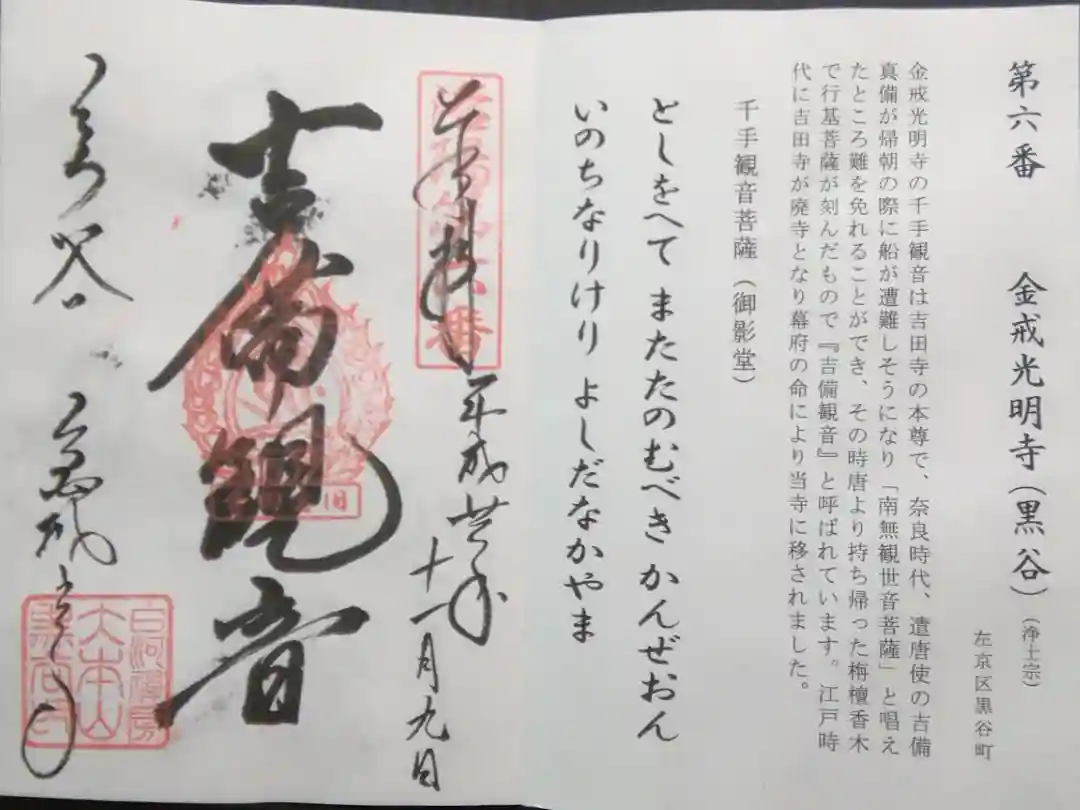 第六番 金戒光明寺（黒谷）（浄土宗）
左京区黒谷町
金戒光明寺の千手観音は吉田寺の本尊で、奈良時代、遣唐使の吉備
真備が帰朝の際に船が遭難しそうになり「南無観世音菩薩」と唱え
たところ難を免れることができ、その時唐より持ち帰った栴檀香木
で行基菩薩が刻んだもので『吉備観音』と呼ばれています。江戸時
代に吉田寺が廃寺となり幕府の命により当寺に移されました。
千手観音菩薩（御影堂）
としをへて またたのむべき かんぜおん
いのちなりけり よしだなかやま
奉拝 平成廿年
十一月九日
吉備観音
白河禅房
大本山